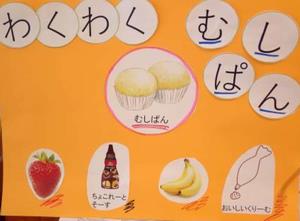 わくわく
むしぱん
むしぱん
ちょこれーと
そーす
おいしいくりーむ